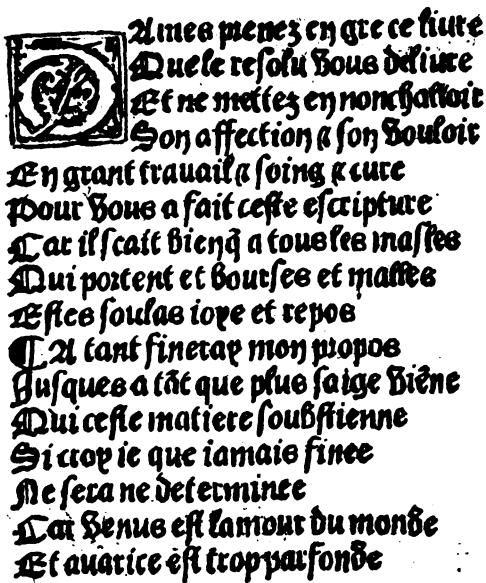 DAmes prenez en gre ce liure
Que le resolu vous deliure
Et ne mettez en nonchalloir
Son affection ⁊ son vouloir
En grant trauail ⁊ soing ⁊ cure
Pour vous a fait ceste escripture
Car il scait bien q̃ a tous les masles
Qui portent et bourses et malles
Estes soulas ioye et repos
¶ A tant fineray mon propos
Jusques a tãt que plus saige viẽne
Qui ceste matiere soubstienne
Si croy ie que iamais finee
Ne sera ne determinee
Car venus est lamour du monde
Et auarice est trop parfonde